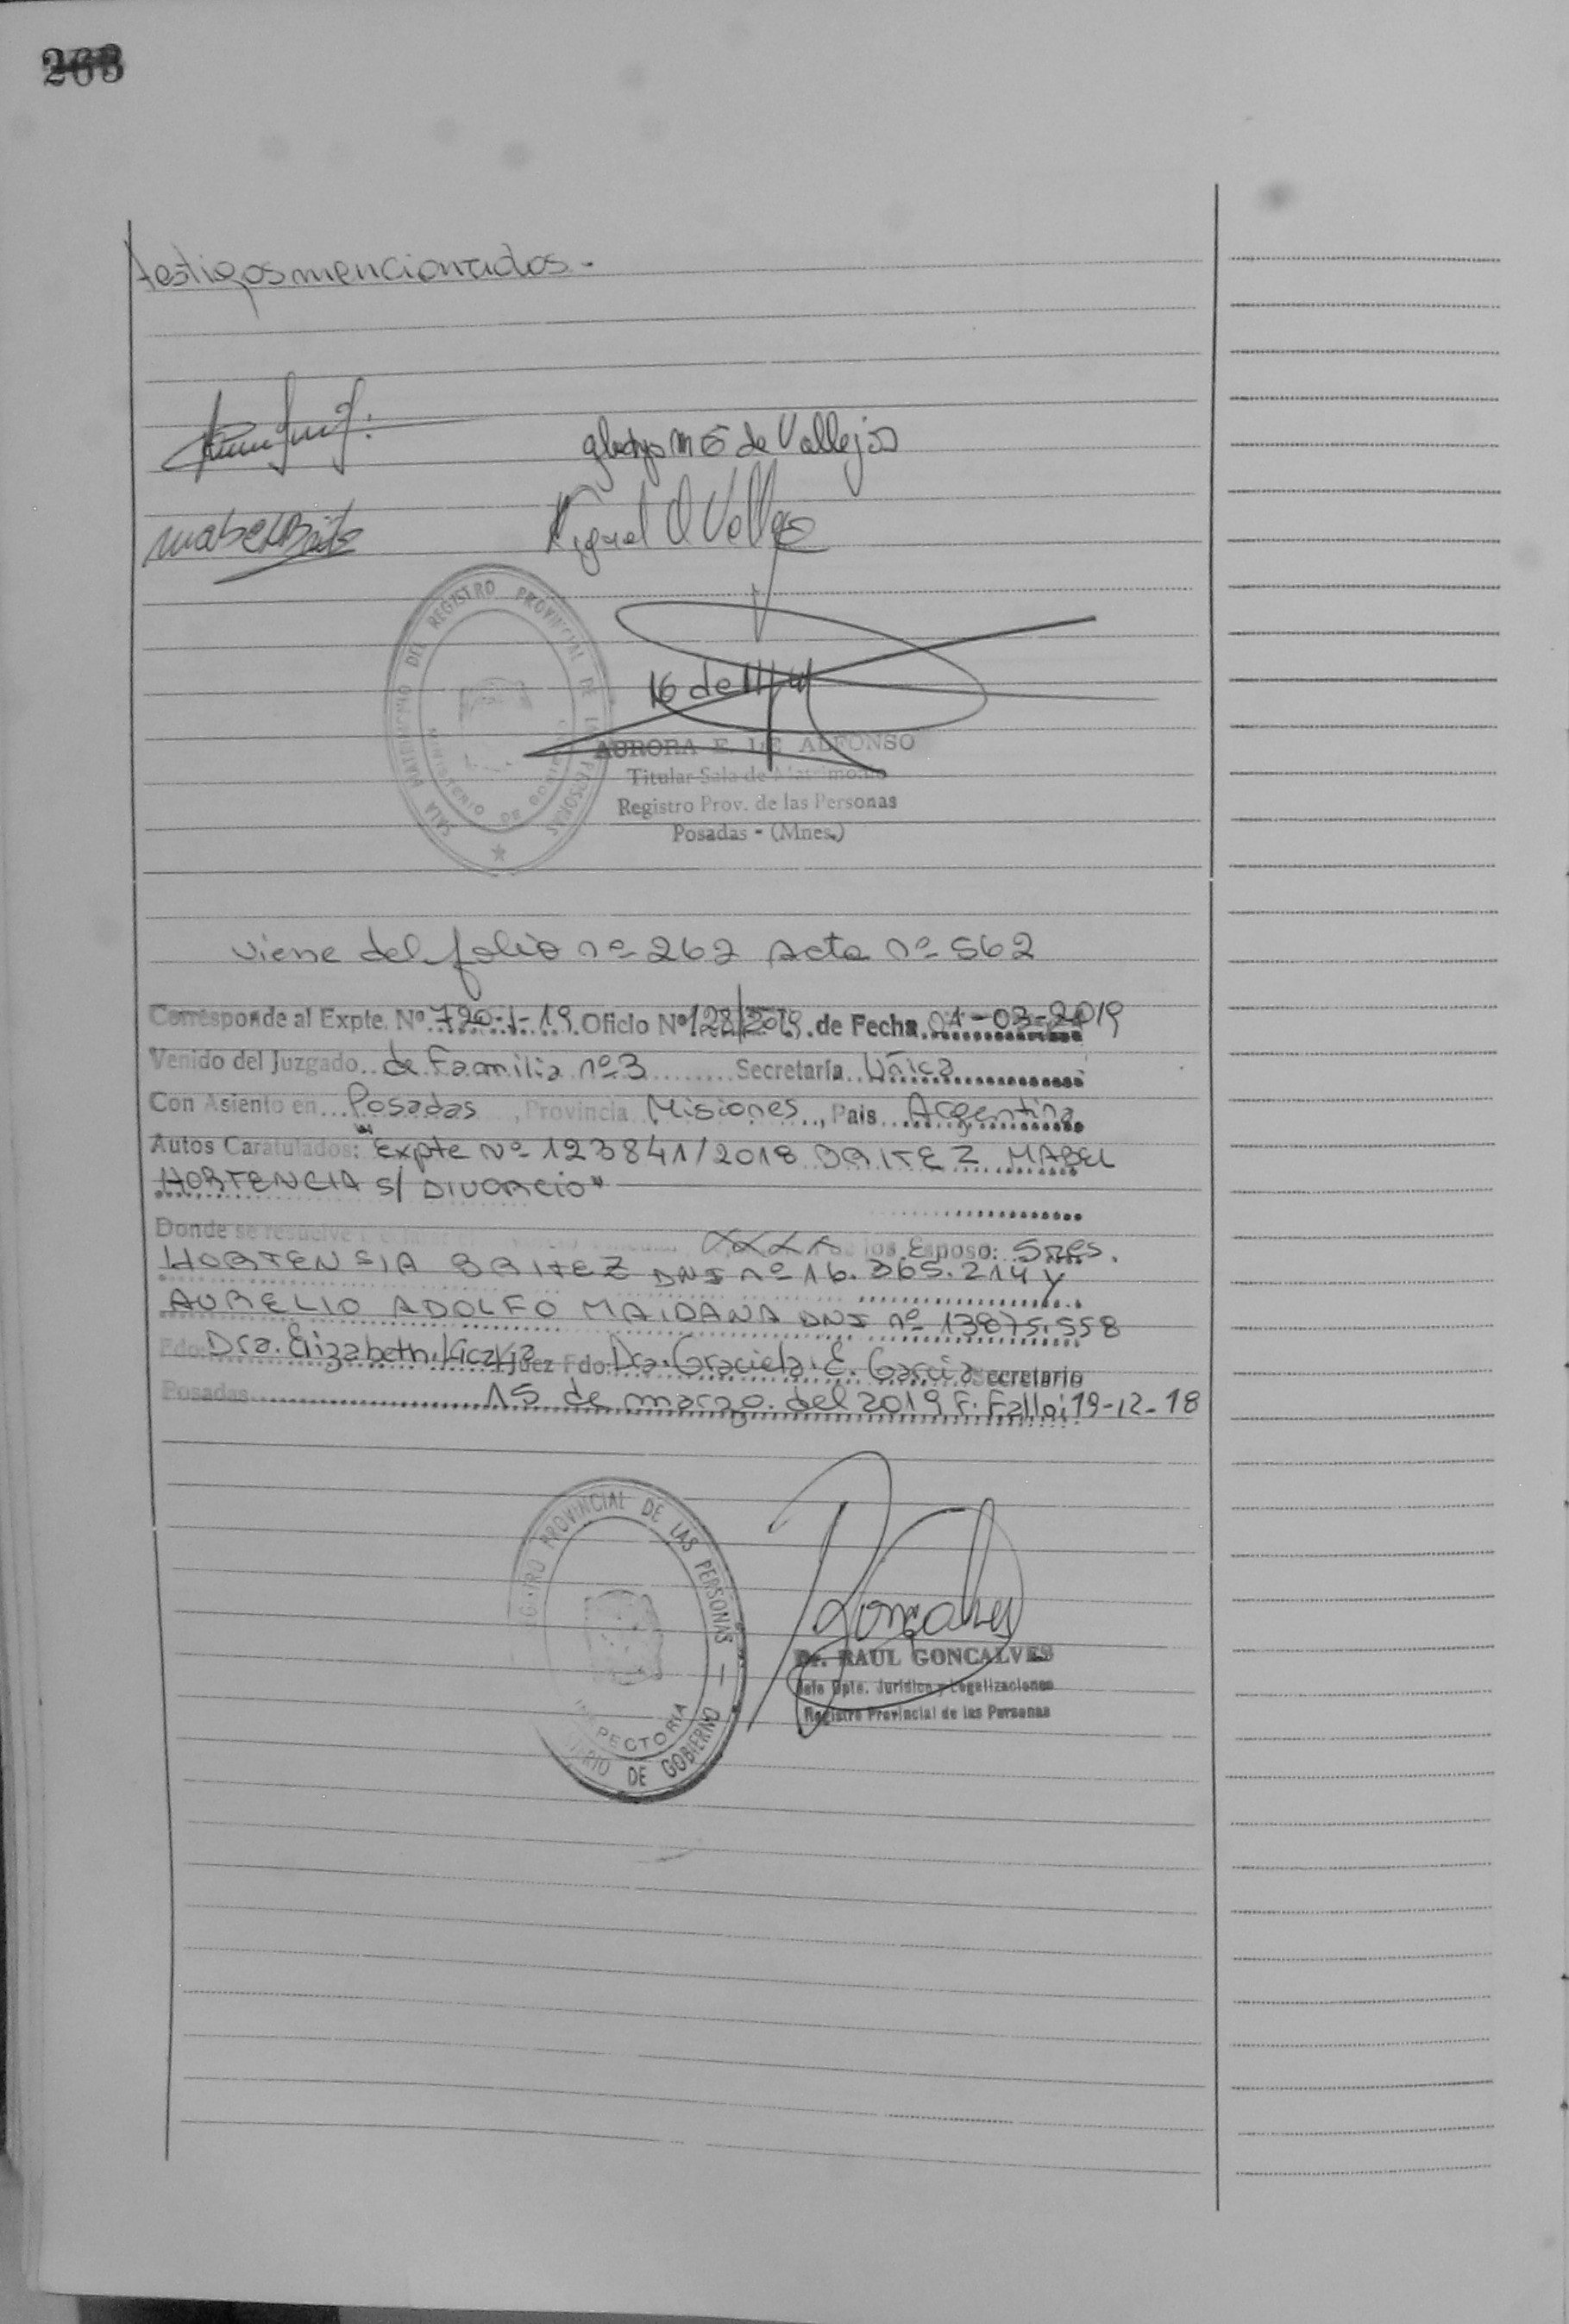 testigos mencionados.-
gladys M G de Vallejos
Mabel Britez
Miguel O Vallejos
SALA MATRIMONIO DEL REGISTRO PROVINCIAL DE LAS PERSONAS
MINISTERIO DE GOBIERNO
16 de
AURORA E. DE ALFONSO
Titular Sala de Matrimonio
Registro Prov. de las Personas
Posadas - (Mnes.)
viene del folio nº 262 Acta nº 562
Corresponde al Expte. Nº 720-J-19 Oficio Nº 128/2019. de Fecha 01-03-2019
Venido del Juzgado de Familia nº 3 Secretaría Única
Con Asiento en Posadas, Provincia Misiones, Pais Argentina
Autos Caratulados: "Expte Nº 123841/2018 BRITEZ MABEL
HORTENCIA s/ DIVORCIO"
Donde se resuelve xxxx de los Esposo: Sres.
HORTENSIA BRITEZ DNI nº 16.365.214 y
AURELIO ADOLFO MAIDANA DNI nº 13875.558
Fdo: Dra. Elizabeth Juez Fdo: Dra. Graciela E. Garcia Secretario
Posadas 15 de marzo del 2019 F. Fallo: 19-12-18
REGISTRO PROVINCIAL DE LAS PERSONAS — MINISTERIO DE GOBIERNO
INSPECTORIA
Dr. RAUL GONCALVES
Jefe Dpto. Jurídico y Legalizaciones
Registro Provincial de las Personas